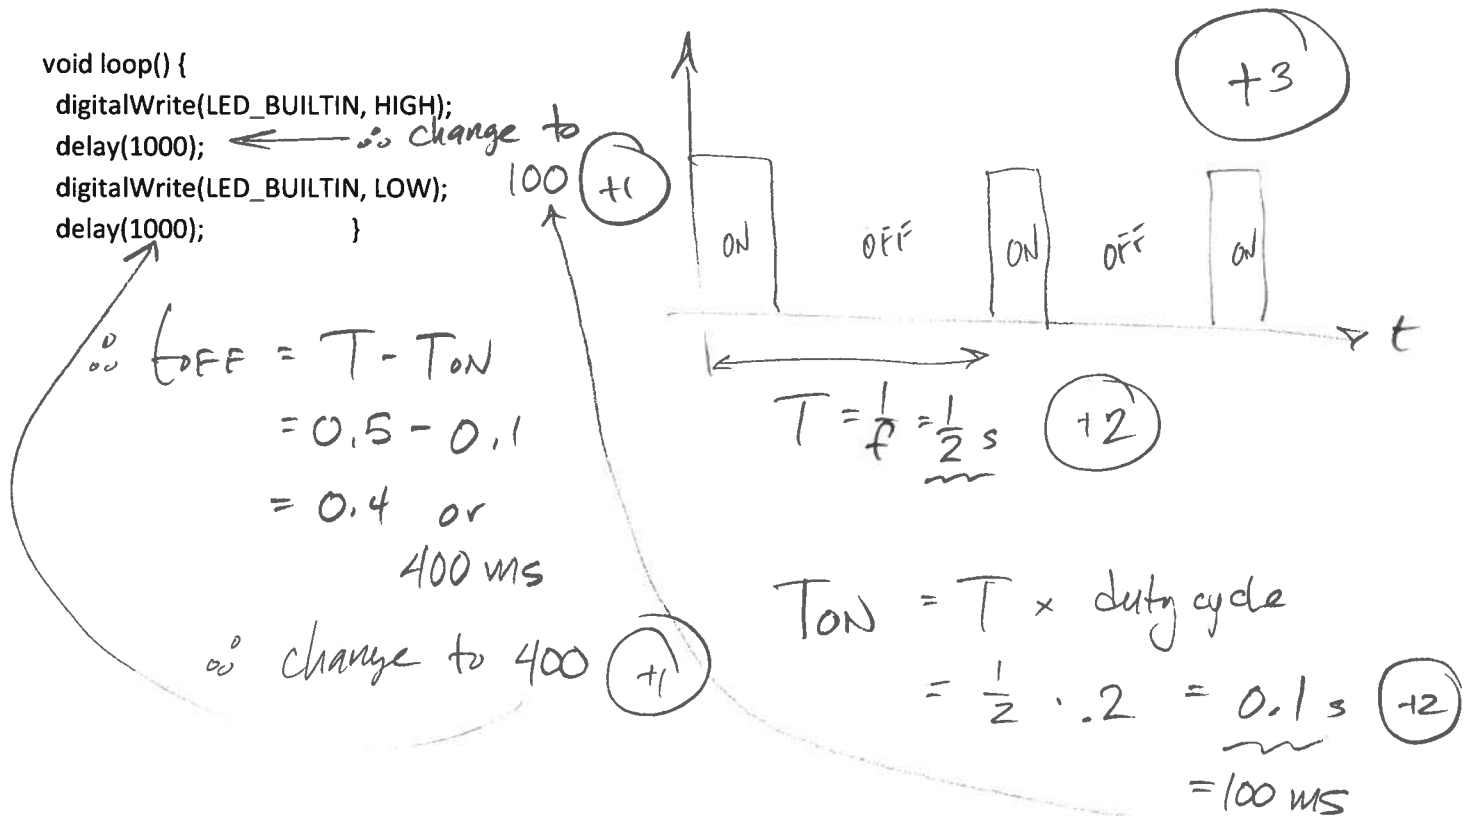 void loop() {
digitalWrite(LED_BUILTIN, HIGH);
delay(1000); ∴ change to
100 +1
digitalWrite(LED_BUILTIN, LOW);
delay(1000); }
∴ tOFF = T - TON
= 0.5 - 0.1
= 0.4 or
400 ms
∴ change to 400 +1
+3
ON OFF ON OFF ON
t
T = 1/f = 1/2 s +2
TON = T × duty cycle
= 1/2 · .2 = 0.1 s +2
= 100 ms